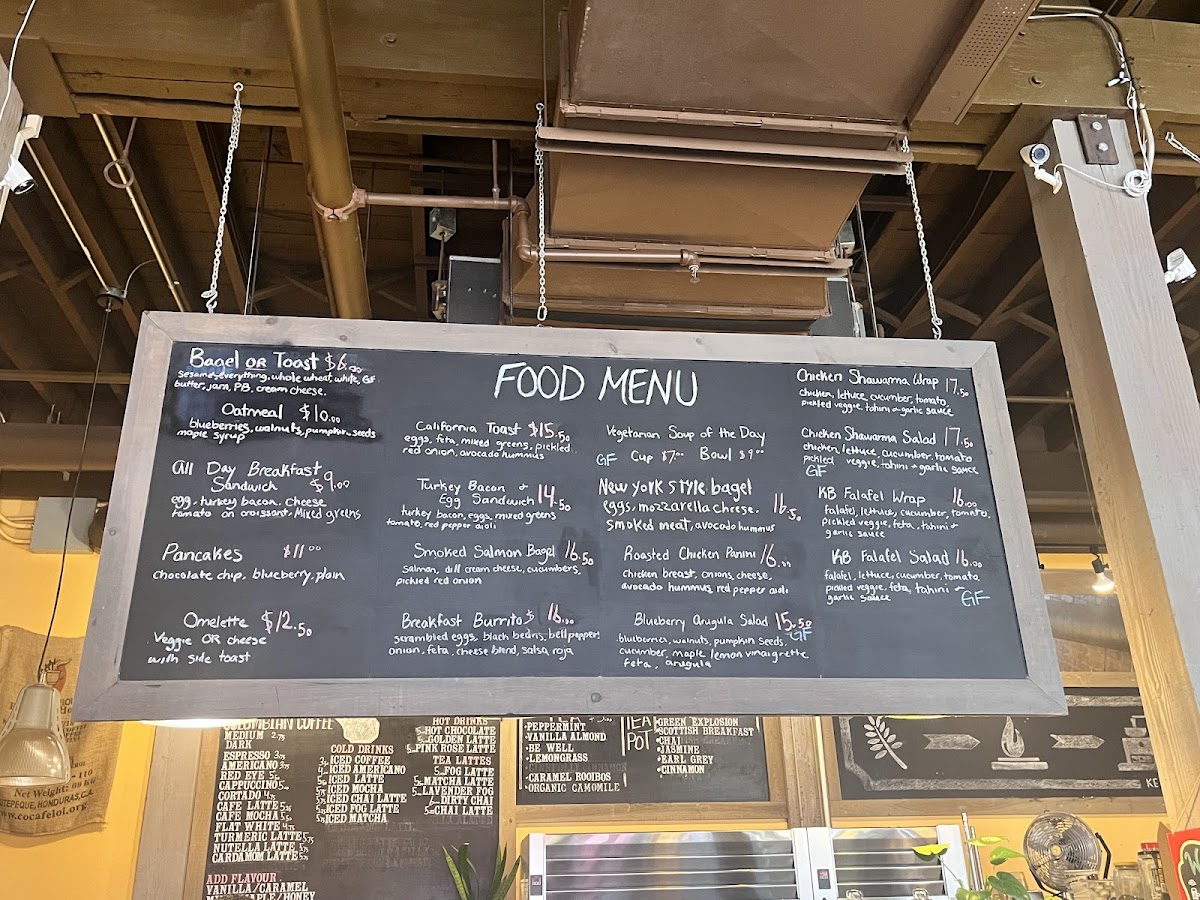 FOOD MENU
Bagel OR Toast $6.00
sesame, everything, whole wheat, white, GF
butter, jam, PB, cream cheese.
Oatmeal $10.00
blueberries, walnuts, pumpkin seeds
maple syrup
All Day Breakfast
Sandwich $9.00
egg, turkey bacon, cheese
tomato on croissant, Mixed greens
Pancakes $11.00
chocolate chip, blueberry, plain
Omelette $12.50
Veggie OR cheese
with side toast
California Toast $15.50
eggs, feta, mixed greens, pickled
red onion, avocado hummus
Turkey Bacon +
Egg Sandwich 14.50
turkey bacon, eggs, mixed greens
tomato, red pepper aioli
Smoked Salmon Bagel 16.50
Salmon, dill cream cheese, cucumbers,
pickled red onion
Breakfast Burrito $16.00
scrambled eggs, black beans, bell pepper,
onion, feta, cheese blend, salsa roja
Vegetarian Soup of the Day
GF Cup $7.00 Bowl $9.00
New York Style bagel
eggs, mozzarella cheese. 16.50
smoked meat, avocado hummus
Roasted Chicken Panini 16.00
chicken breast, onions, cheese,
avocado hummus, red pepper aioli
Blueberry Arugula Salad 15.50
blueberries, walnuts, pumpkin seeds GF
cucumber, maple lemon vinaigrette
feta, arugula
Chicken Shawarma Wrap 17.50
chicken, lettuce, cucumber, tomato
pickled veggie, tahini & garlic sauce
Chicken Shawarma Salad 17.50
chicken, lettuce, cucumber, tomato
pickled veggie, tahini & garlic sauce
GF
KB Falafel Wrap 16.00
falafel, lettuce, cucumber, tomato,
pickled veggie, feta, tahini &
garlic sauce
KB Falafel Salad 16.00
falafel, lettuce, cucumber, tomato
pickled veggie, feta, tahini &
garlic sauce GF
COLOMBIAN COFFEE
MEDIUM 2.75
DARK
ESPRESSO
AMERICANO
RED EYE
CAPPUCCINO
CORTADO
CAFE LATTE
CAFE MOCHA
FLAT WHITE
TURMERIC LATTE
NUTELLA LATTE
CARDAMOM LATTE
ADD FLAVOUR
VANILLA/CARAMEL
MAPLE/HONEY
COLD DRINKS
ICED COFFEE
ICED AMERICANO
ICED LATTE
ICED MOCHA
ICED CHAI LATTE
ICED FOG LATTE
ICED MATCHA
HOT DRINKS
HOT CHOCOLATE
GOLDEN LATTE
PINK ROSE LATTE
TEA LATTES
FOG LATTE
MATCHA LATTE
LAVENDER FOG
DIRTY CHAI
CHAI LATTE
·PEPPERMINT
·VANILLA ALMOND
·BE WELL
·LEMONGRASS
·CARAMEL ROOIBOS
·ORGANIC CAMOMILE
TEA
POT
·GREEN EXPLOSION
·SCOTTISH BREAKFAST
·CHAI
·JASMINE
·EARL GREY
·CINNAMON
KE
Net Weight: 69 K
HONDURAS, C.A.
www.cocafelol.org